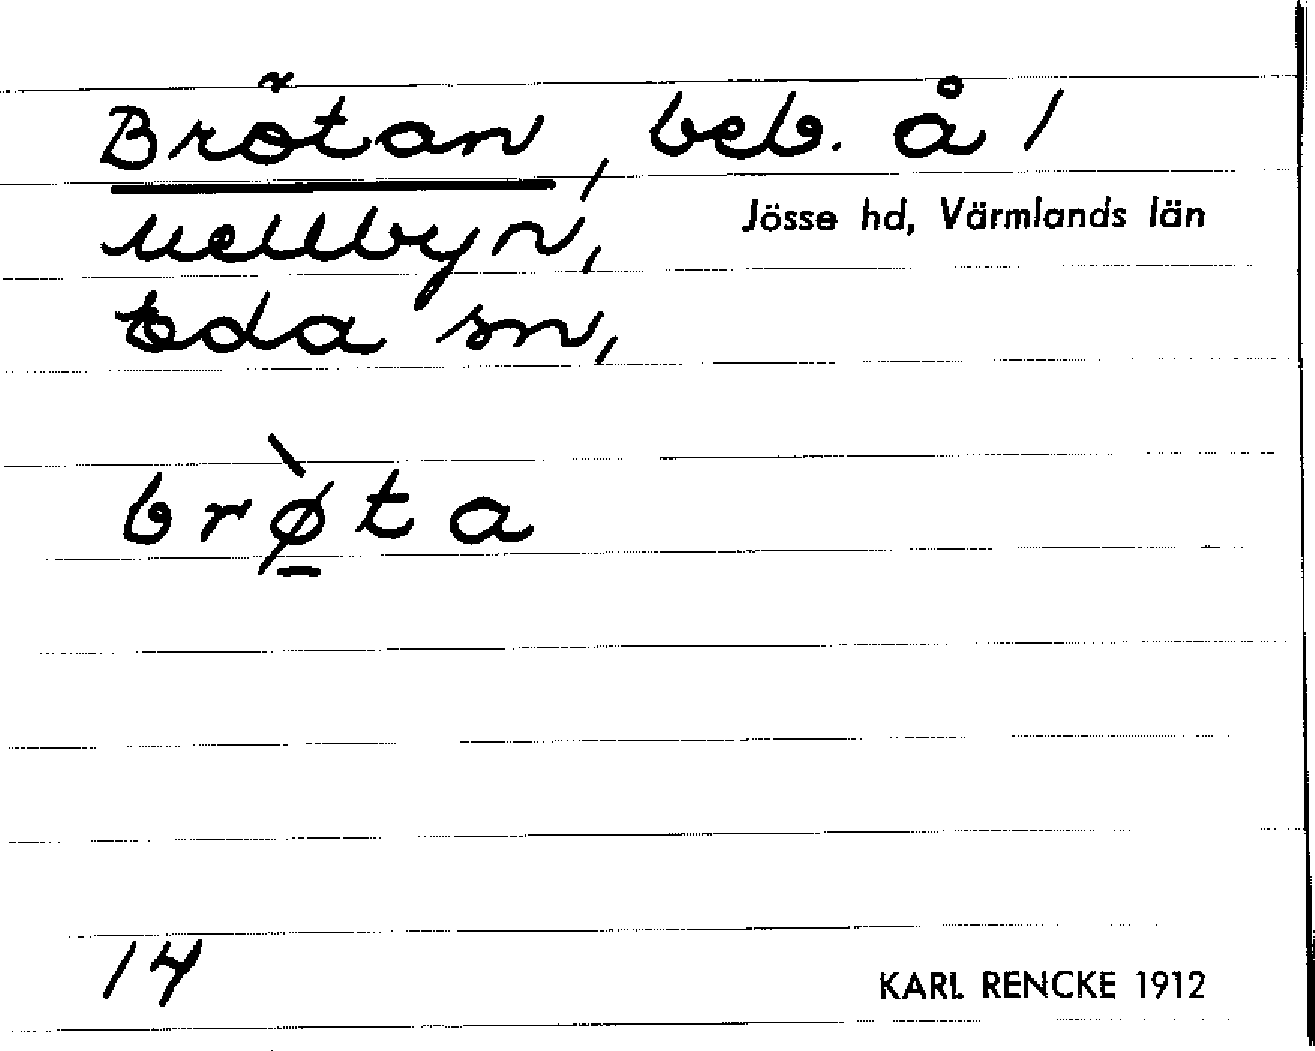 Brötan, beb. å /
Mellbyn,
Jösse hd, Värmlands län
Eda sn,
brø̠̀ta
14
KARL RENCKE 1912